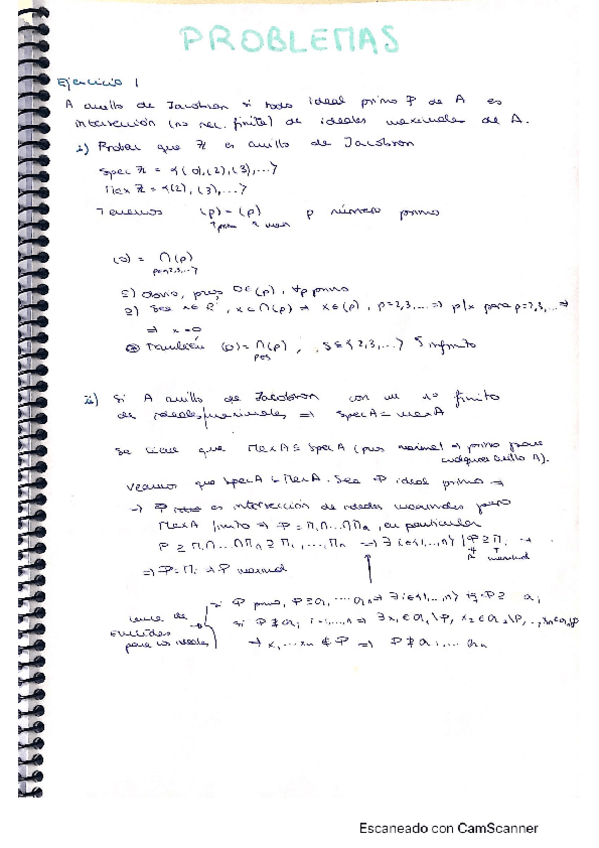 PROBLEMAS
Ejercicio 1
A anillo de Jacobson si todo ideal primo P de A es
intersección (no nec. finita) de ideales maximales de A.
i) Probar que Z es anillo de Jacobson
Spec Z = {(0), (2), (3), ...}
Max Z = {(2), (3), ...}
Tenemos (p) = (p) p número primo
(0) = ∩(p)
p∈{2,3,...}
⊆) obvio, pues 0∈(p), ∀p primo
⊇) Sea x∈ , x∈∩(p) ⇒ x∈(p), p=2,3,... ⇒ p|x para p=2,3,... ⇒
⇒ x=0
También (0) = ∩(p), S⊆{2,3,...} S infinito
p∈S
ii) Si A anillo de Jacobson con un nº finito
de ideales maximales ⇒ Spec A = Max A
Se tiene que Max A ⊆ Spec A (pues maximal ⇒ primo para
cualquier anillo A).
Veamos que Spec A ⊆ Max A. Sea P ideal primo ⇒
⇒ P es intersección de ideales maximales pero
Max A finito ⇒ P = M₁∩...∩Mₙ, en particular
P ⊇ M₁∩...∩Mₙ ⊇ M₁ ... Mₙ ⇒ ∃ i∈{1,...,n} | P ⊇ Mᵢ ⇒
⇒ P = Mᵢ ⇒ P maximal
Lema de
Euclides
para los ideales
si P primo, P ⊇ a₁ ... aₙ ⇒ ∃ i∈{1,...,n} tq P ⊇ aᵢ
si P ⊉ aᵢ i=1,...,n ⇒ ∃ x₁∈a₁\P, x₂∈a₂\P, ..., xₙ∈aₙ\P
⇒ x₁ ... xₙ ∉ P ⇒ P ⊉ a₁ ... aₙ
Escaneado con CamScanner